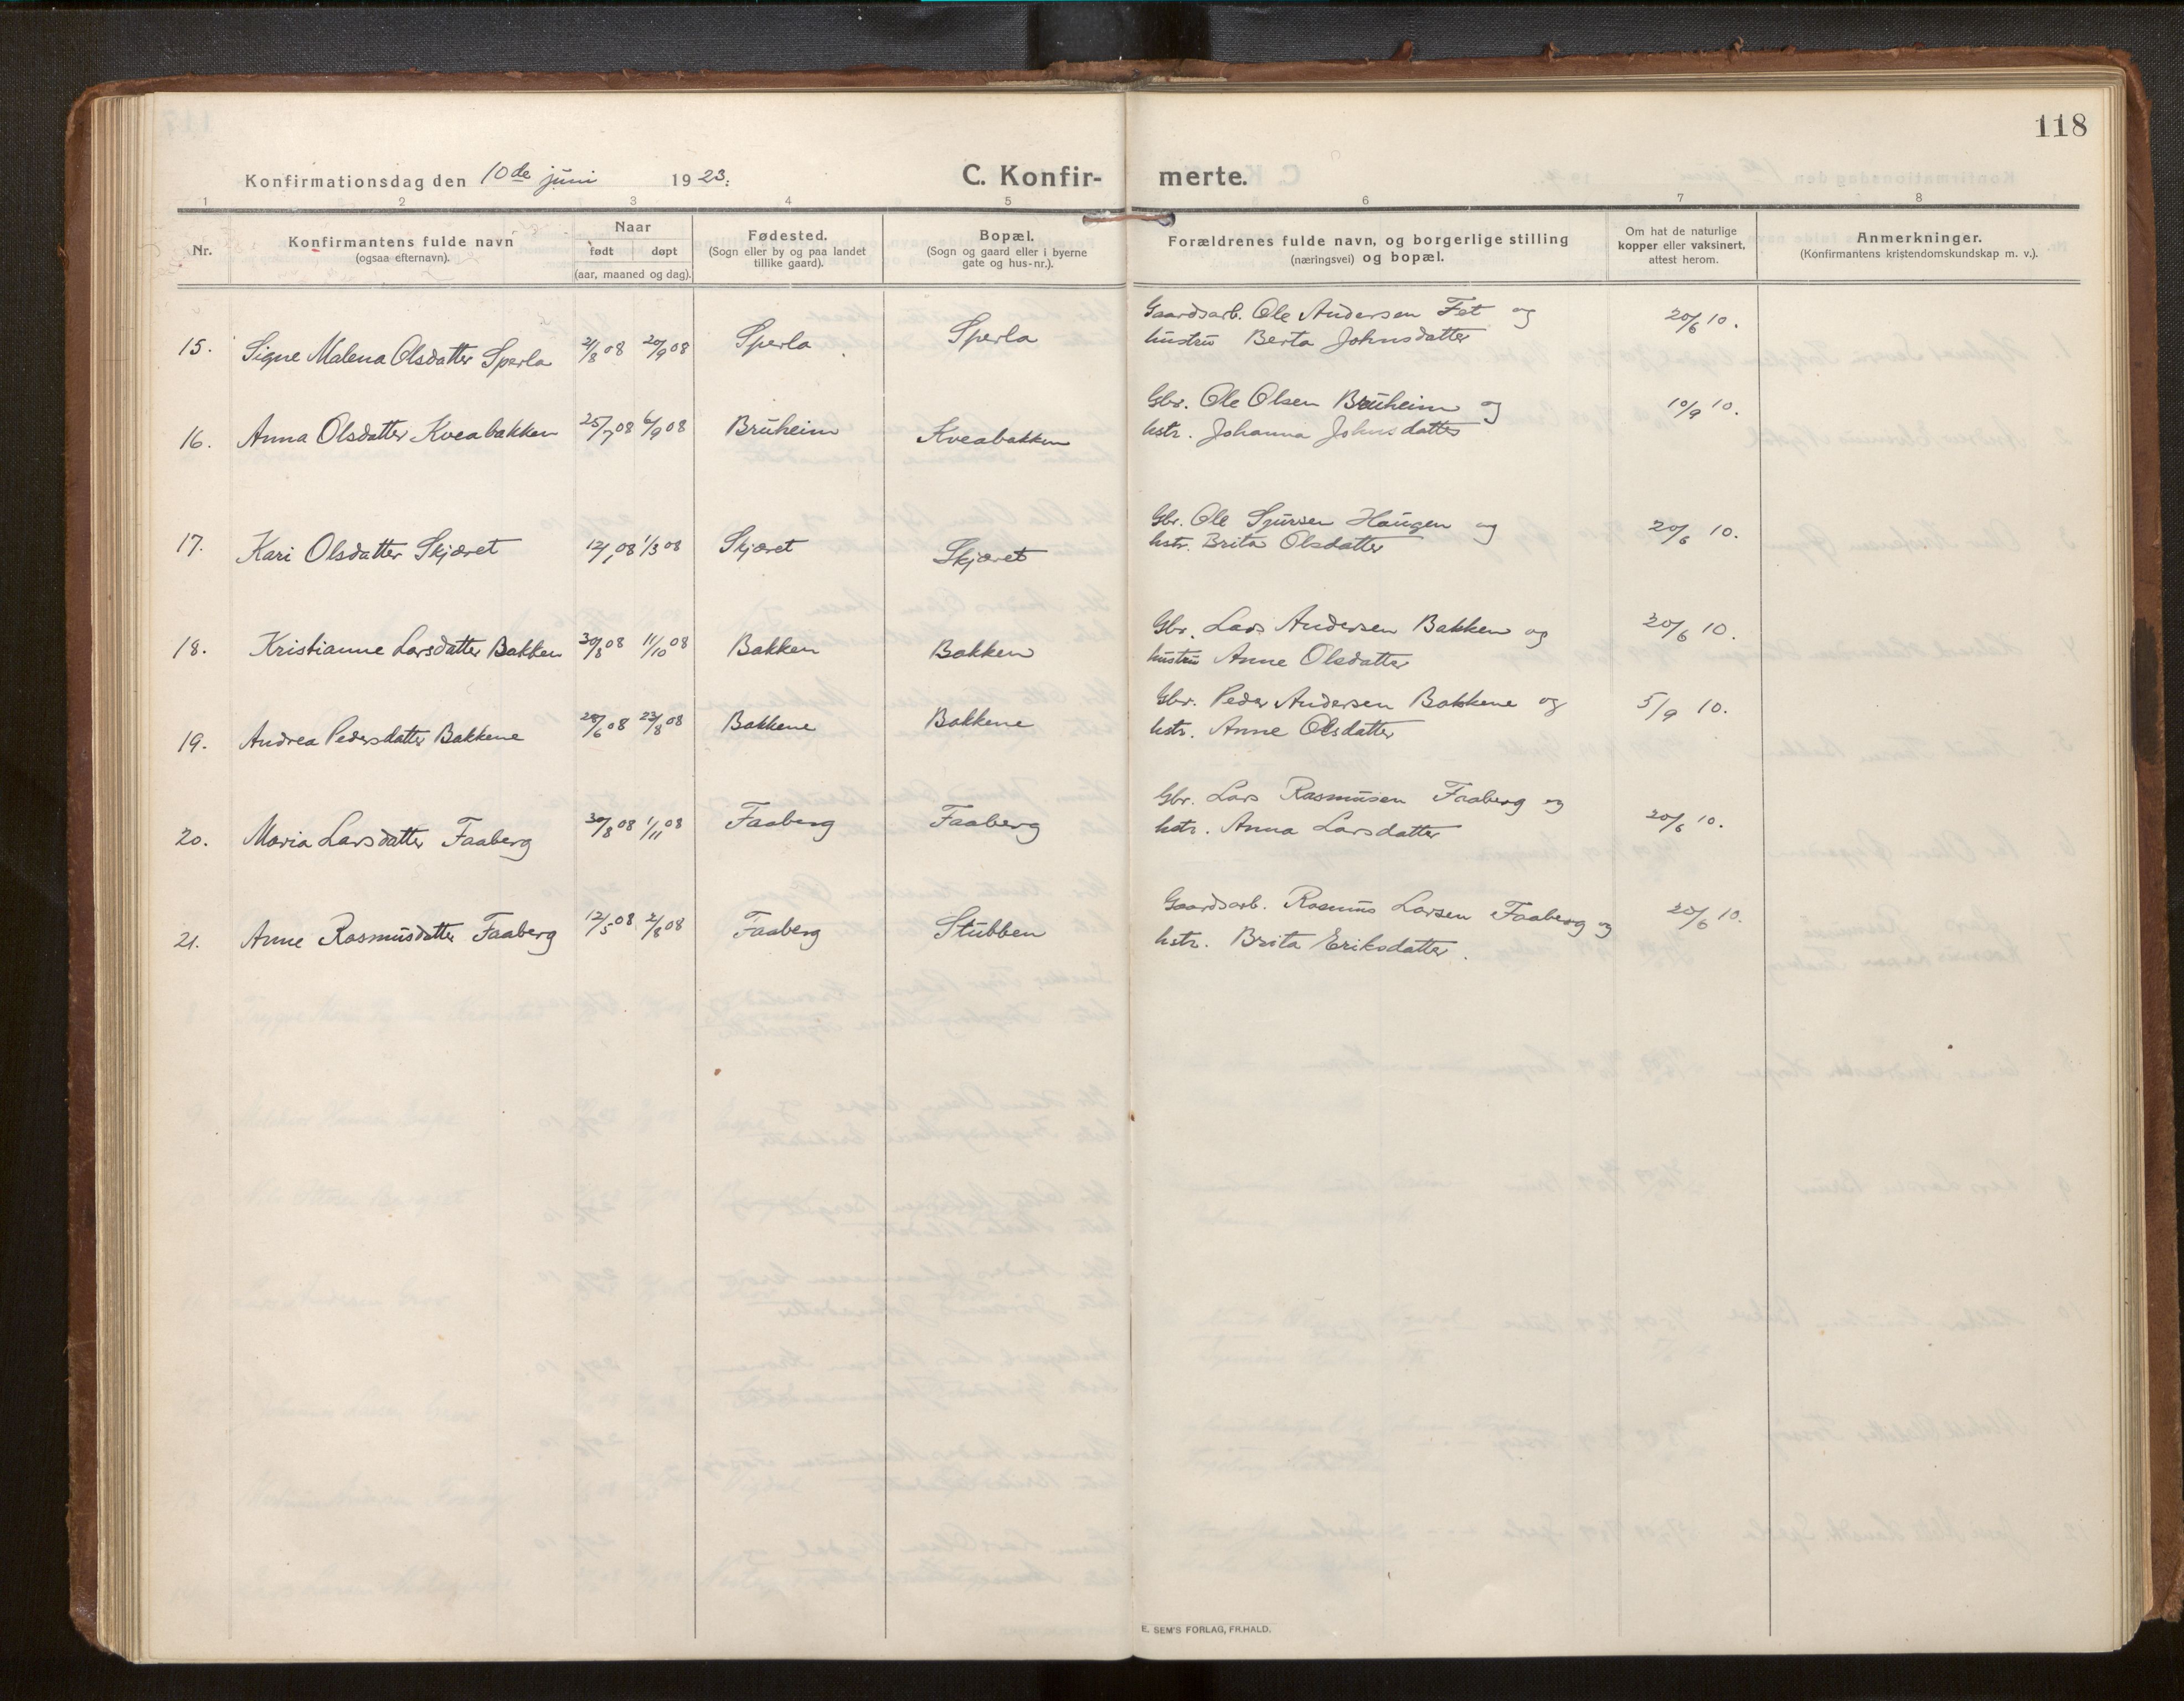 118
Konfirmationsdag den 10de juni 1923.
C. Konfir- merte.
1 2 3 4 5 6 7 8
Nr.
Konfirmantens fulde navn
(ogsaa efternavn).
Naar
født døpt
(aar, maaned og dag).
Fødested.
(Sogn eller by og paa landet
tillike gaard).
Bopæl.
(Sogn og gaard eller i byerne
gate og hus-nr.).
Forældrenes fulde navn, og borgerlige stilling
(næringsvei) og bopæl.
Om hat de naturlige
kopper eller vaksinert,
attest herom.
Anmerkninger.
(Konfirmantens kristendomskundskap m. v.).
15. Signe Malena Olsdatter Sperla 21/8 08 20/9 08 Sperla Sperla Gaardsarb. Ole Andersen Fet og 20/6 10.
hustru Berta Johnsdatter
16. Anna Olsdatter Kveabakken 25/7 08 6/9 08 Bruheim Kveabakken Gbr. Ole Olsen Bruheim og 10/9 10.
hstr. Johanna Johnsdatter
17. Kari Olsdatter Skjæret 12/1 08 1/3 08 Skjæret Skjæret Gbr. Ole Sjursen Haugen og 20/6 10.
hstr. Brita Olsdatter
18. Kristianne Larsdatter Bakken 30/8 08 11/10 08 Bakken Bakken Gbr. Lars Andersen Bakken og 20/6 10.
hustru Anne Olsdatter
19. Andrea Pedersdatter Bakkene 28/6 08 23/8 08 Bakkene Bakkene Gbr. Peder Andersen Bakkene og 5/9 10.
hstr. Anne Olsdatter
20. Maria Larsdatter Faaberg 30/8 08 1/11 08 Faaberg Faaberg Gbr. Lars Rasmusen Faaberg og 20/6 10.
hstr. Anna Larsdatter
21. Anne Rasmusdatter Faaberg 12/5 08 2/8 08 Faaberg Stubben Gaardsarb. Rasmus Larsen Faaberg og 20/6 10.
hstr. Brita Eriksdatter.
E. SEM'S FORLAG, FR.HALD.